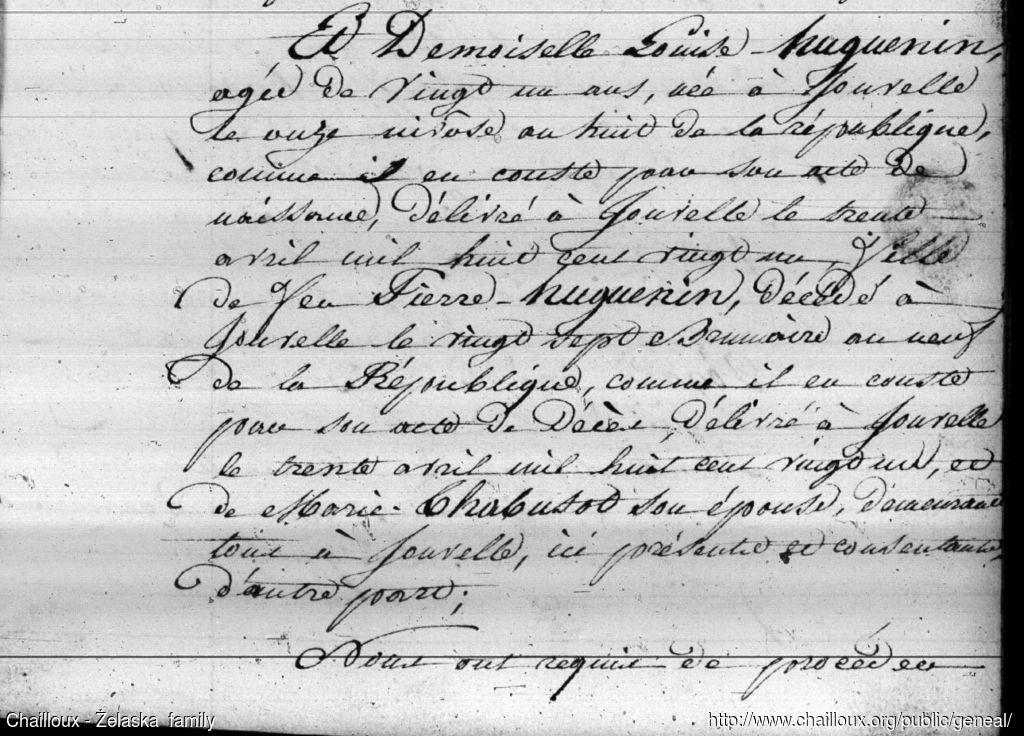 Et Demoiselle Louise Huguenin,
agée de vingt un ans, née à Jouvelle
le onze nivôse an huit de la république,
comme il en conste par son acte de
naissance, délivré à Jouvelle le trente
avril mil huit cent vingt un, fille
de feu Pierre Huguenin, décédé à
Jouvelle le vingt sept Brumaire an neuf
de la République, comme il en conste
par son acte de Décès, délivré à Jouvelle
le trente avril mil huit cent vingt un, et
de Marie Chabusot son épouse, demeurant
tous à Jouvelle, ici présente et consentante,
d'autre part;
Nous ont requis de procéder
Chailloux - Želaska family
http://www.chailloux.org/public/geneal/